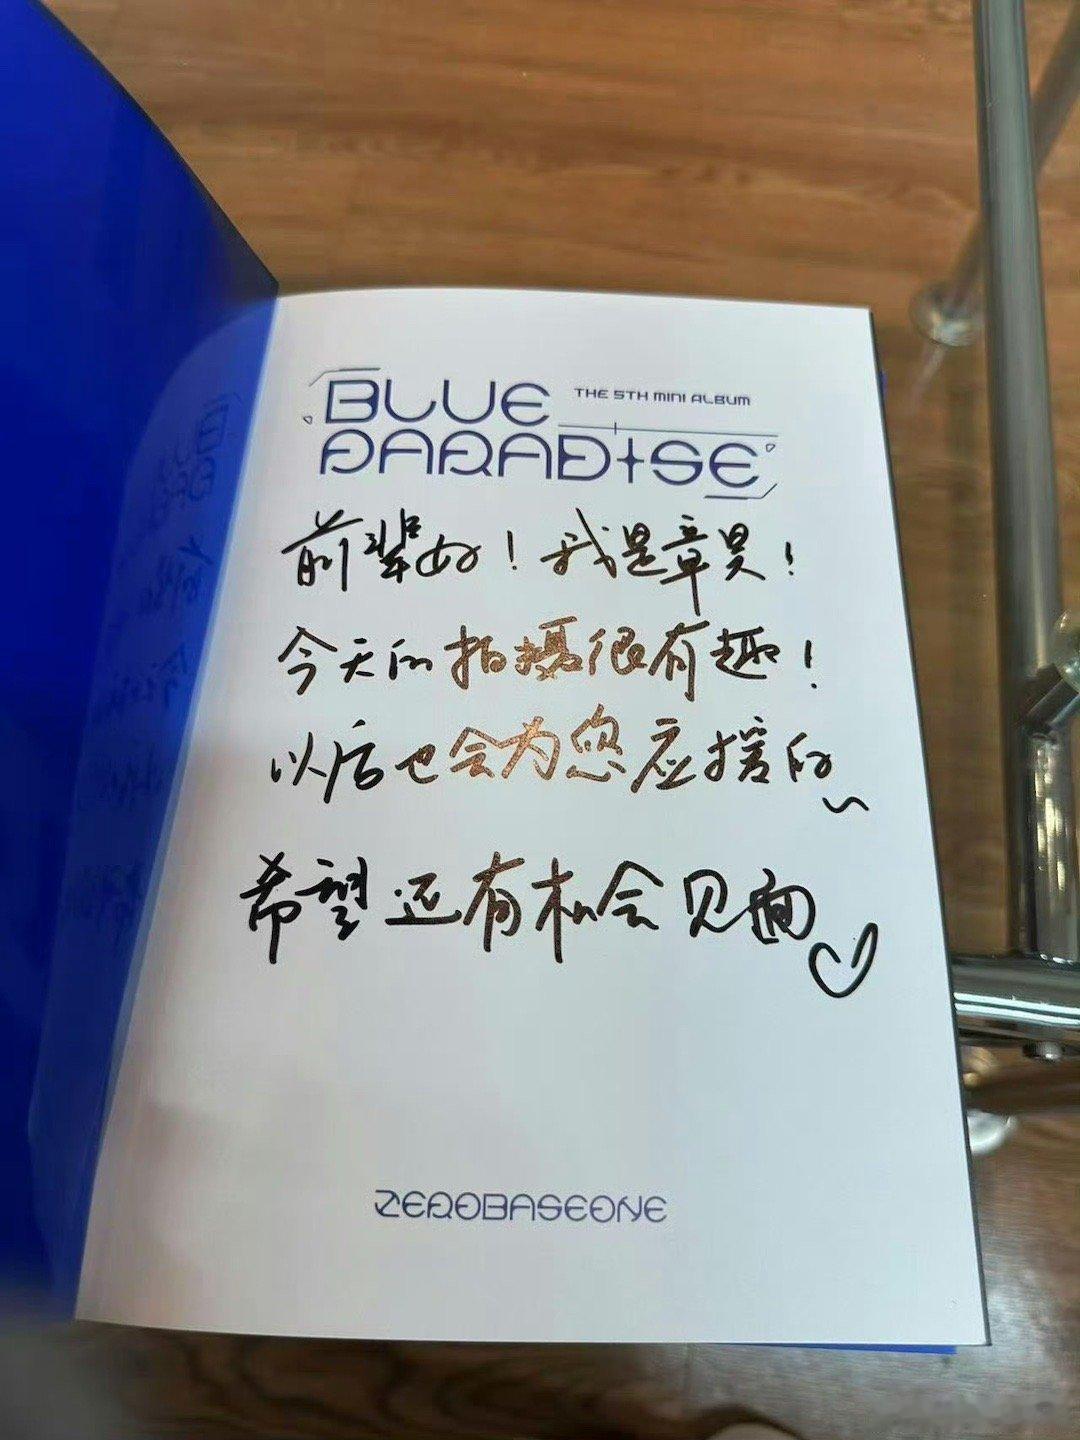 BLUE
THE 5TH MINI ALBUM
PARADISE
前辈好！我是章昊！
今天的拍摄很有趣！
以后也会为您应援的~
希望还有机会见面
ZEROBASEONE